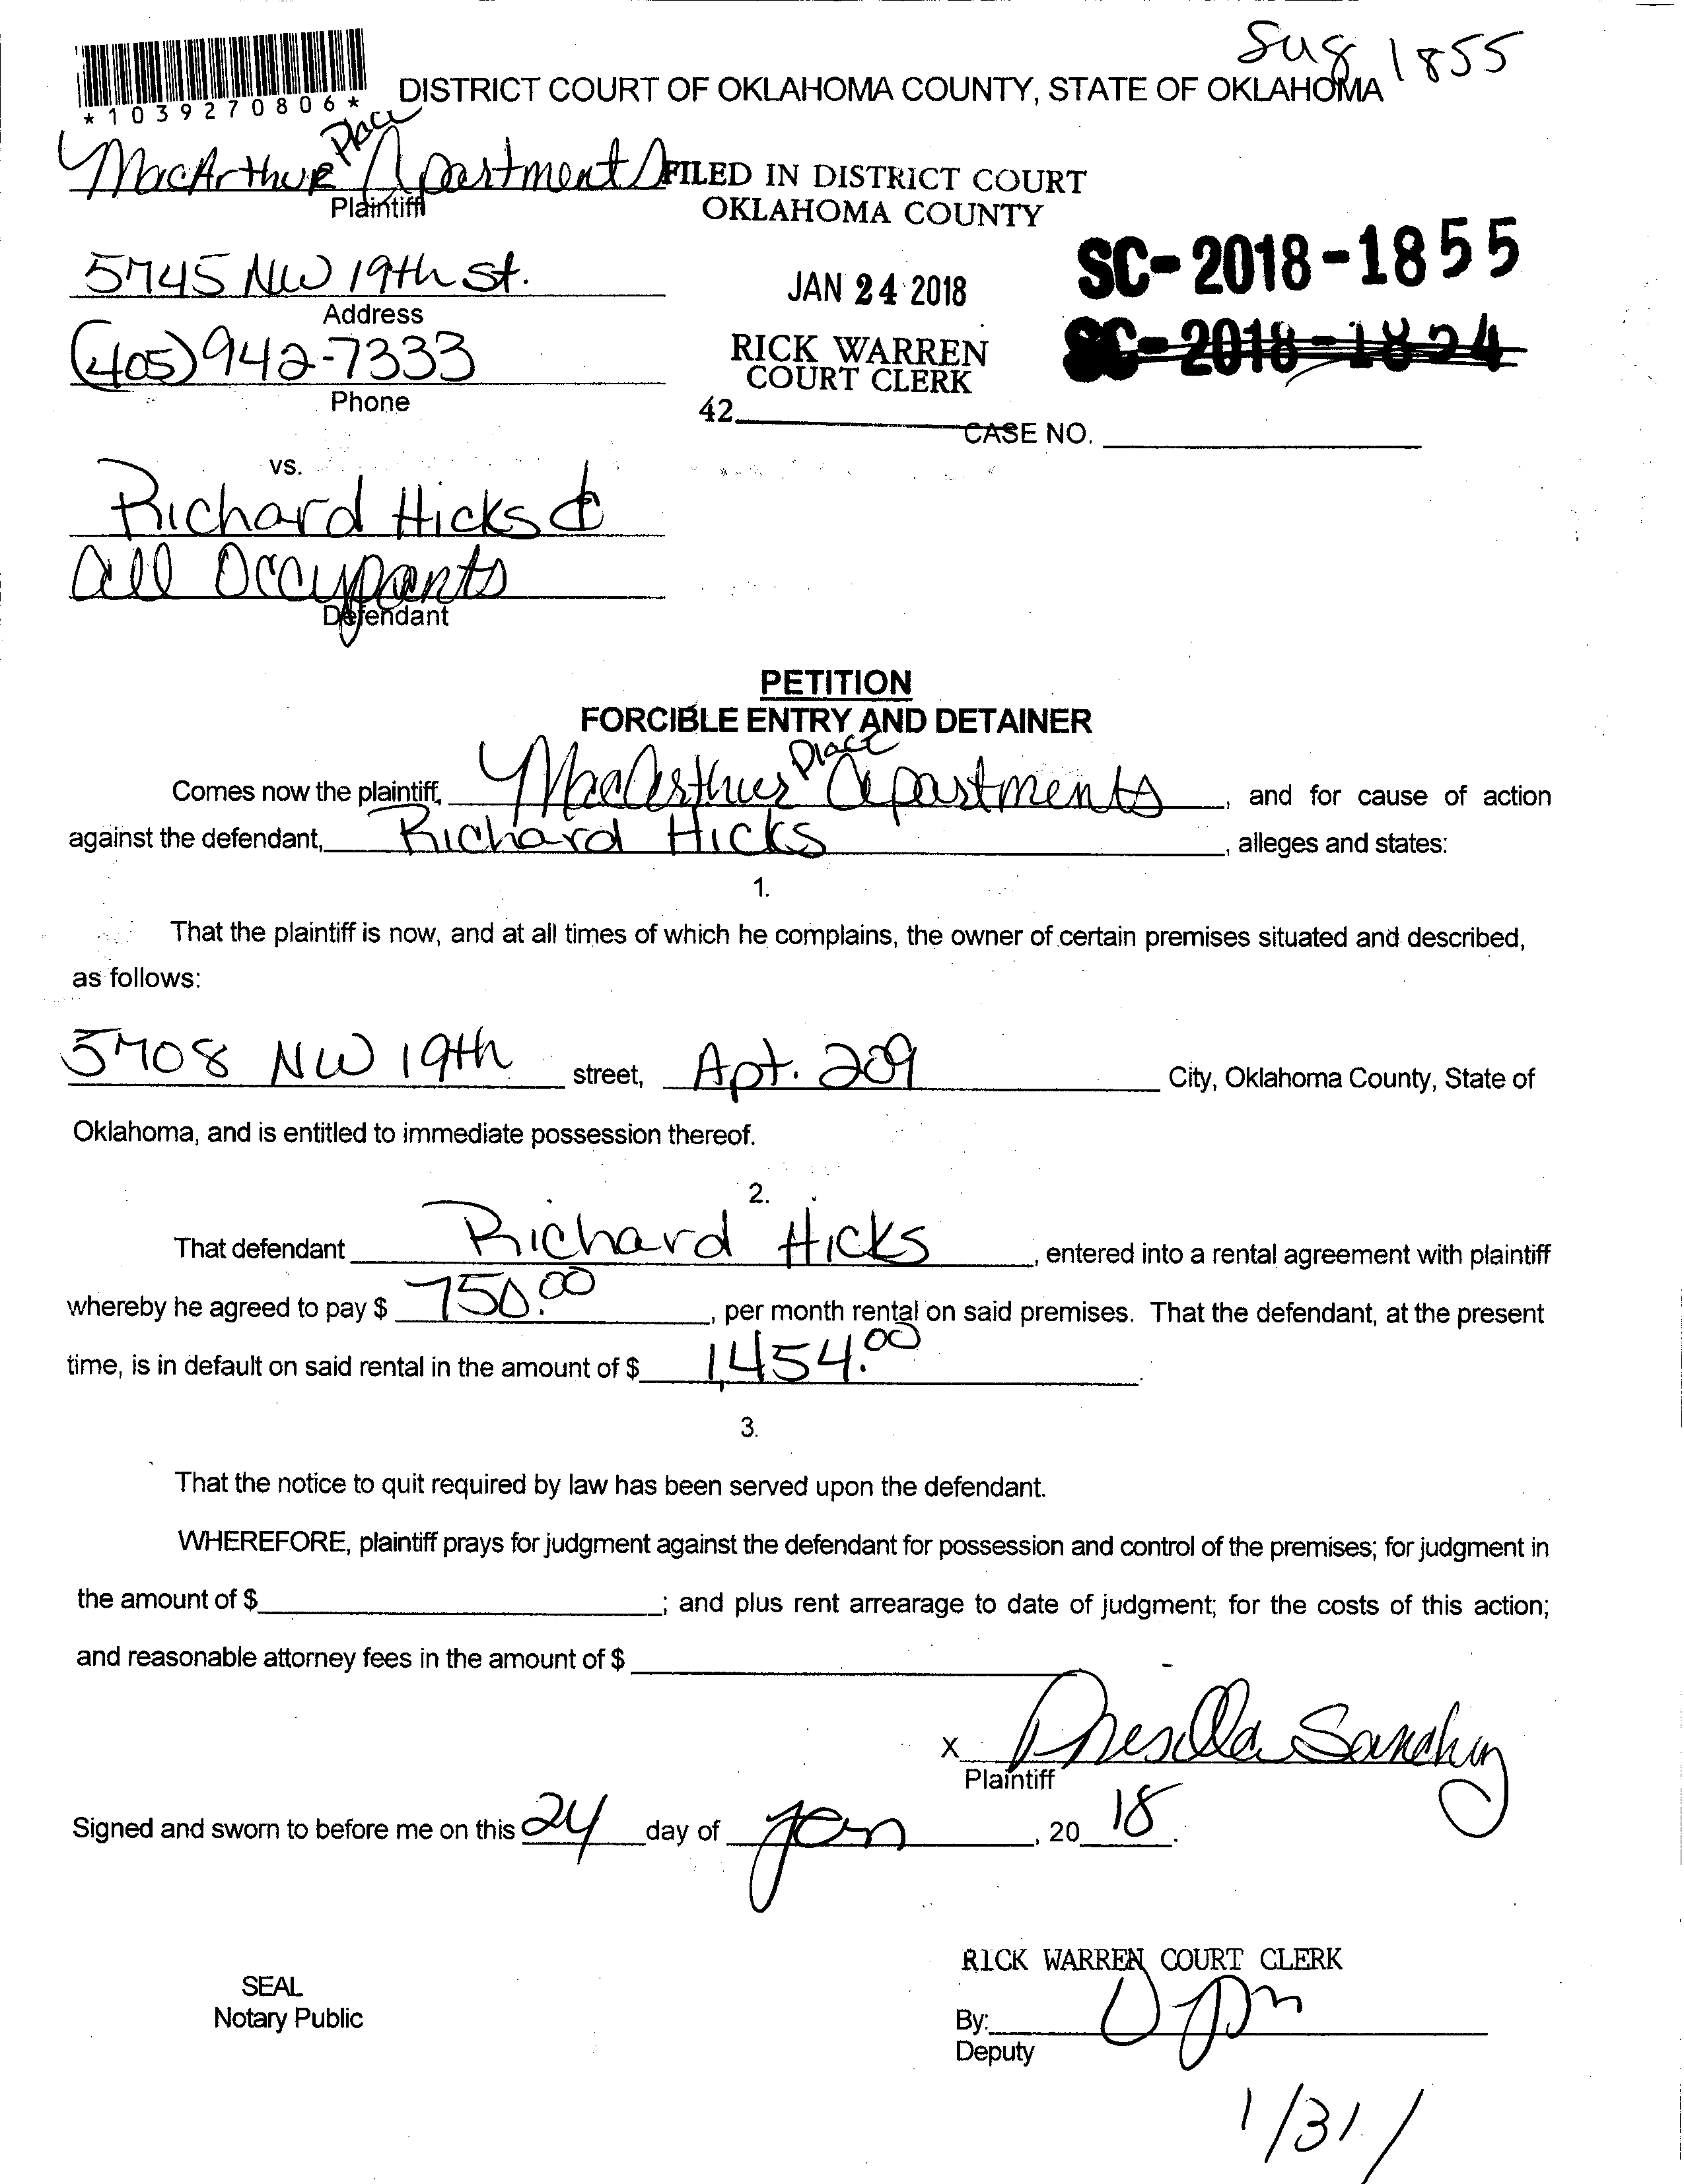 Sug 1855
*1039270806*
DISTRICT COURT OF OKLAHOMA COUNTY, STATE OF OKLAHOMA
MacArthur Place Apartments
Plaintiff
FILED IN DISTRICT COURT
OKLAHOMA COUNTY
5745 NW 19th St.
Address
JAN 24 2018
SC-2018-1855
(405) 942-7333
Phone
RICK WARREN
COURT CLERK
SC-2018-1824
42
CASE NO.
vs.
Richard Hicks &
all Occupants
Defendant
PETITION
FORCIBLE ENTRY AND DETAINER
Comes now the plaintiff, MacArthur Place Apartments, and for cause of action
against the defendant, Richard Hicks, alleges and states:
1.
That the plaintiff is now, and at all times of which he complains, the owner of certain premises situated and described,
as follows:
5708 NW 19th street, Apt. 209 City, Oklahoma County, State of
Oklahoma, and is entitled to immediate possession thereof.
2.
That defendant Richard Hicks, entered into a rental agreement with plaintiff
whereby he agreed to pay $ 750.00, per month rental on said premises. That the defendant, at the present
time, is in default on said rental in the amount of $ 1,454.00.
3.
That the notice to quit required by law has been served upon the defendant.
WHEREFORE, plaintiff prays for judgment against the defendant for possession and control of the premises; for judgment in
the amount of $ ; and plus rent arrearage to date of judgment; for the costs of this action;
and reasonable attorney fees in the amount of $
X
Plaintiff
Signed and sworn to before me on this 24 day of Jan, 20 18.
RICK WARREN COURT CLERK
SEAL
Notary Public
By:
Deputy
1/31/